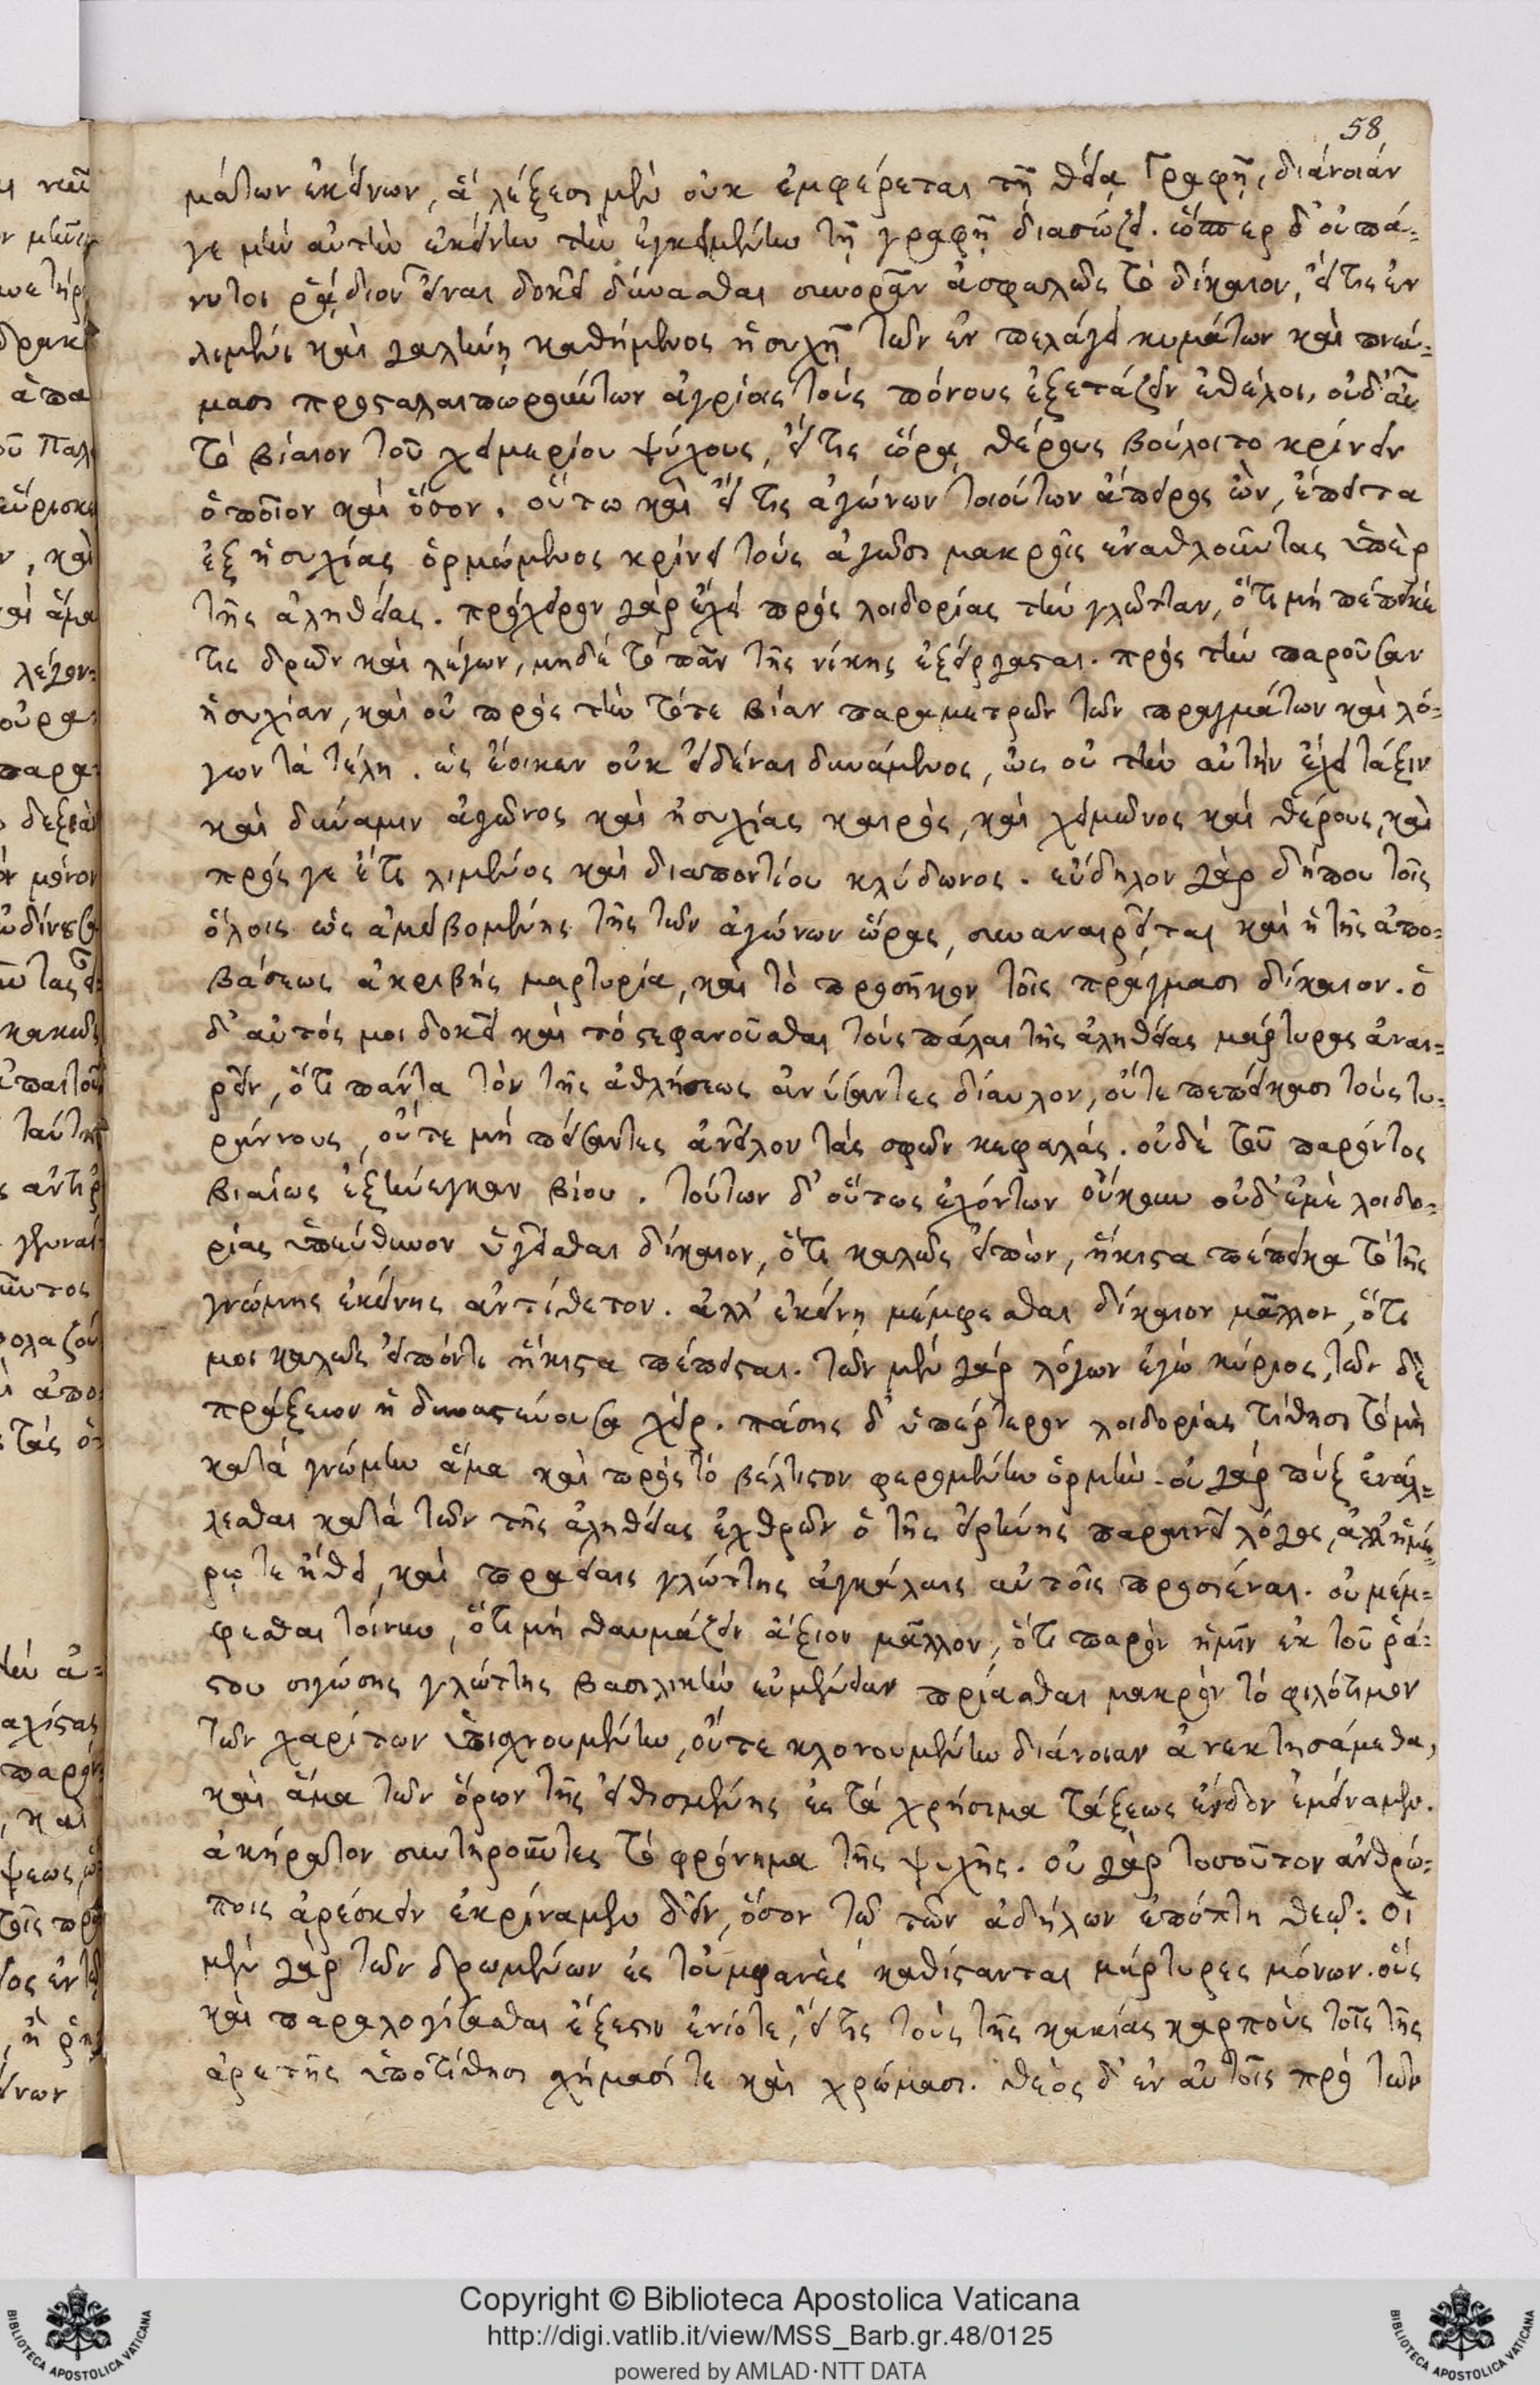 58
μάτων ἐκείνων, ἃ λέξεσι μὲν οὐκ ἐμφέρεται τῇ θείᾳ Γραφῇ, διάνοιάν
γε μὴν αὐτὴν ἐκείνην τὴν ἐγκειμένην τῇ γραφῇ διασώζει. ὥσπερ δ' οὐ πά-
νυ τοι ῥᾴδιον εἶναι δοκεῖ δύνασθαι συνορᾷν ἀσφαλῶς τὸ δίκαιον, εἴ τις ἐν
λιμένι καὶ γαλήνῃ καθήμενος ἡσυχῇ τῶν ἐν πελάγει κυμάτων καὶ πνεύ-
μασι προσταλαιπωρούντων ἀγρίοις τοὺς πόνους ἐξετάζειν ἐθέλοι, οὐδ' αὖ
τὸ βίαιον τοῦ χειμερίου ψύχους, εἴ τις ὥρᾳ θέρους βούλοιτο κρίνειν
ὁποῖον καὶ ὅσον. οὕτω καὶ εἴ τις ἀγώνων τοιούτων ἄπειρος ὢν, ἔπειτα
ἐξ ἡσυχίας ὁρμώμενος κρίνει τοὺς ἀγῶσι μακροῖς ἐναθλοῦντας ὑπὲρ
τῆς ἀληθείας. πρόχειρον γὰρ ἔχει πρὸς λοιδορίας τὴν γλῶτταν, ὅτι μὴ πέπεικέ
τις δρῶν καὶ λέγων, μηδὲ τὸ πᾶν τῆς νίκης ἐξείργασται. πρὸς τὴν παροῦσαν
ἡσυχίαν, καὶ οὐ πρὸς τὴν τότε βίαν παραμετρῶν τῶν πραγμάτων καὶ λό-
γων τὰ τέλη. ὡς ἔοικεν οὐκ εἰδέναι δυνάμενος, ὡς οὐ τὴν αὐτὴν ἔχει τάξιν
καὶ δύναμιν ἀγῶνος καὶ ἡσυχίας καιρὸς, καὶ χειμῶνος καὶ θέρους, καὶ
πρός γε ἔτι λιμένος καὶ διαποντίου κλύδωνος. εὔδηλον γὰρ δήπου τοῖς
ὅλοις ὡς ἀμειβομένης τῆς τῶν ἀγώνων ὥρας, συναναιρεῖται καὶ ἡ τῆς ἀπο-
βάσεως ἀκριβὴς μαρτυρία, καὶ τὸ προσῆκον τοῖς πράγμασι δίκαιον. ὁ
δ' αὐτός μοι δοκεῖ καὶ τὸ στεφανοῦσθαι τοὺς πάλαι τῆς ἀληθείας μάρτυρας ἀναι-
ρεῖν, ὅτι πάντα τὸν τῆς ἀθλήσεως ἀνύσαντες δίαυλον, οὔτε πεπείκασι τοὺς τυ-
ράννους, οὔτε μὴ πείσαντες ἀνεῖλον τὰς σφῶν κεφαλάς. οὐδὲ τοῦ παρόντος
βιαίως ἐξήνεγκαν βίου. τούτων δ' οὕτως ἐχόντων οὔκουν οὐδ' ἐμὲ λοιδο-
ρίας ὑπεύθυνον ἡγεῖσθαι δίκαιον, ὅτι καλῶς εἰπὼν, ἥκιστα πέπεικα τὸ τῆς
γνώμης ἐκείνης ἀντίθετον. ἀλλ' ἐκείνῃ μέμφεσθαι δίκαιον μᾶλλον, ὅτι
μοι καλῶς εἰπόντι ἥκιστα πέπεισται. τῶν μὲν γὰρ λόγων ἐγὼ κύριος, τῶν δὲ
πράξεων ἡ δυναστεύουσα χείρ. πάσης δ' ὑπέρτερον λοιδορίας τίθησι τὸ μὴ
κατὰ γνώμην ἅμα καὶ πρὸς τὸ βέλτιστον φερομένην ὁρμήν. οὐ γὰρ πὺξ ἐνάλ-
λεσθαι κατὰ τῶν τῆς ἀληθείας ἐχθρῶν ὁ τῆς εἰρήνης παραινεῖ λόγος, ἀλλ' ἡμέ-
ρῳ τε ἤθει, καὶ πραείαις γλώττης ἀγκάλαις αὐτοῖς προσιέναι. οὐ μέμ-
φεσθαι τοίνυν, ὅτι μὴ θαυμάζειν ἄξιον μᾶλλον, ὅτι παρὸν ἡμῖν ἐκ τοῦ ῥά-
στου σιγώσης γλώττης βασιλικὴν εὐμένειαν πρίασθαι μακρὸν τὸ φιλότιμον
τῶν χαρίτων ὑπισχνουμένην, οὔτε κλονουμένην διάνοιαν ἀνεκτησάμεθα,
καὶ ἅμα τῶν ὅρων τῆς εἰθισμένης ἐς τὰ χρήσιμα τάξεως ἔνδον ἐμείναμεν.
ἀκήρατον συντηροῦντες τὸ φρόνημα τῆς ψυχῆς. οὐ γὰρ τοσοῦτον ἀνθρώ-
ποις ἀρέσκειν ἐκρίναμεν δεῖν, ὅσον τῷ τῶν ἀδήλων ἐπόπτῃ θεῷ: οἱ
μὲν γὰρ τῶν δρωμένων ἐς τοὐμφανὲς καθίστανται μάρτυρες μόνων. οὓς
καὶ παραλογίσασθαι ἔξεστιν ἐνίοτε, εἴ τις τοὺς τῆς κακίας καρποὺς τοῖς τῆς
ἀρετῆς ὑποτίθησι σχήμασί τε καὶ χρώμασι. θεὸς δ' ἐν αὐτοῖς πρὸ τῶν
Copyright © Biblioteca Apostolica Vaticana
http://digi.vatlib.it/view/MSS_Barb.gr.48/0125
powered by AMLAD·NTT DATA
BIBLIOTECA APOSTOLICA VATICANA
BIBLIOTECA APOSTOLICA VATICANA